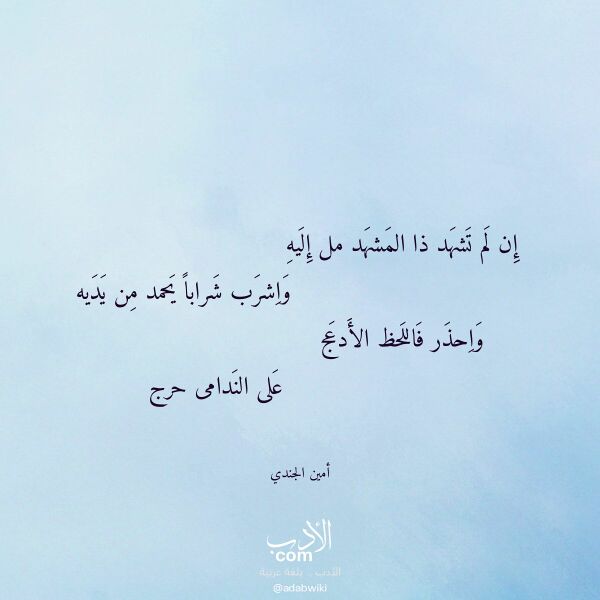 إِن لَم تَشهَد ذا المَشهَد مل إِلَيهِ
وَاِشرَب شَراباً يَحمد مِن يَدَيه
وَاِحذَر فَاللَحظ الأَدعَج
عَلى النَدامى حرج
أمين الجندي
الأدب
com
الأدب .. بلغة عربية
@adabwiki